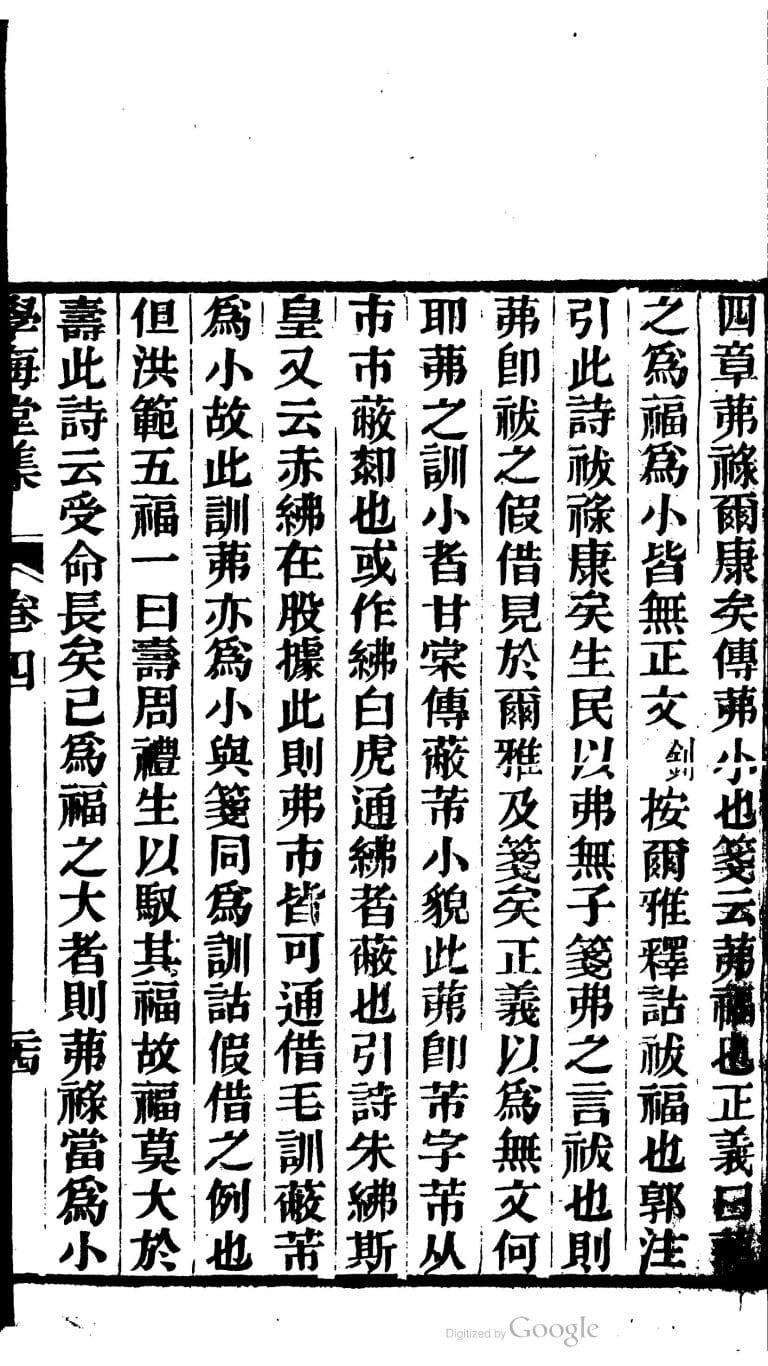 四章茀祿爾康矣傳茀小也箋云茀福也正義曰茀
之為福為小皆無正文釗按爾雅釋詁祓福也郭注
引此詩祓祿康矣生民以弗無子箋弗之言祓也則
茀卽祓之假借見於爾雅及箋矣正義以為無文何
耶茀之訓小者甘棠傳蔽芾小貌此茀卽芾字芾从
巿巿蔽䣛也或作紼白虎通紼者蔽也引詩朱紼斯
皇又云赤紼在股據此則弗巿皆可通借毛訓蔽芾
為小故此訓茀亦為小與箋同為訓詁假借之例也
但洪範五福一曰壽周禮生以馭其福故福莫大於
壽此詩云受命長矣已為福之大者則茀祿當為小
學海堂集 卷四
Digitized by Google